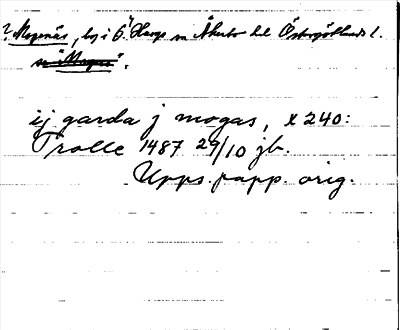 ? Mogenäs, by i G. Husby sn Åkerbo hd Östergötlands l.
sn "Mogas".
ij garda j mogas, x 240:
Trolle 1487 29/10 jb.
Upps. papp. orig.